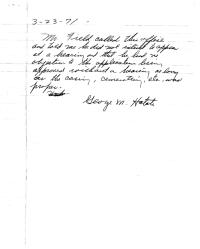 3-23-71
Mr. Field called this office
and told me he did not intend to appear
at a hearing and that he had no
objection to the application being
approved without a hearing as long
as the casing, cementing, etc. was
proper.
George M. Hatch